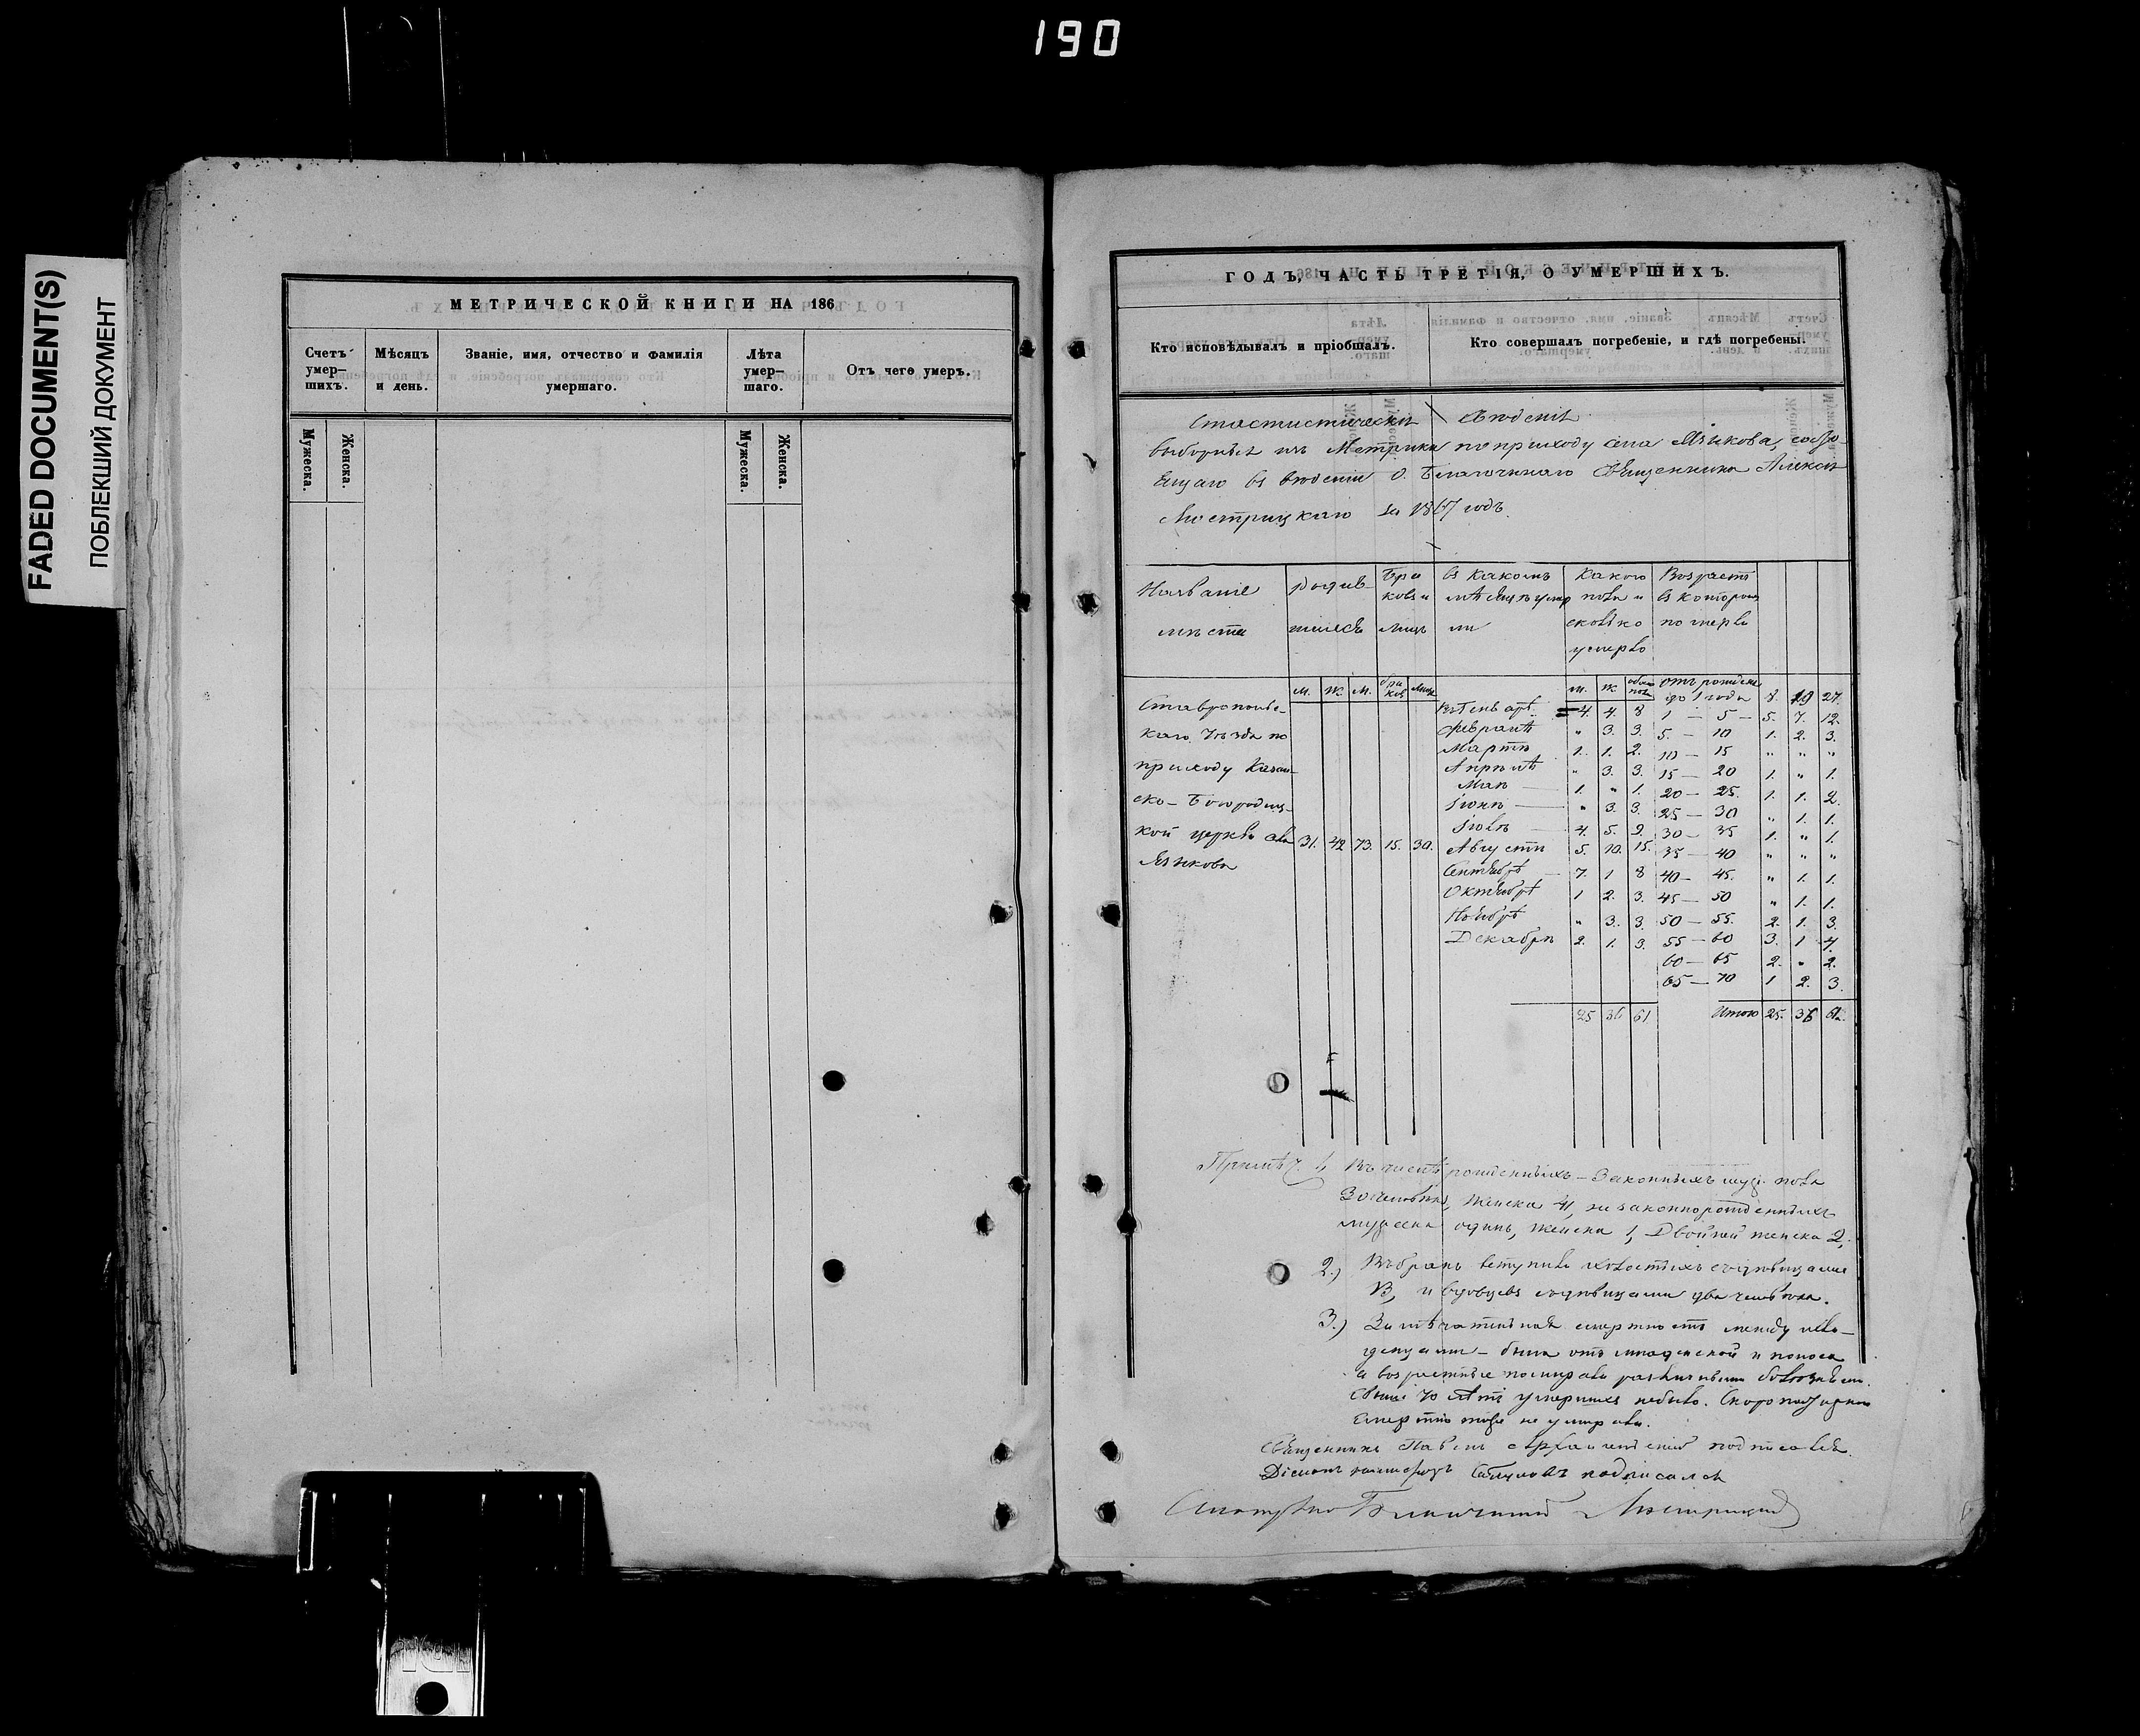 190
FADED DOCUMENT(S)
ПОБЛЕКШИЙ ДОКУМЕНТ
МЕТРИЧЕСКОЙ КНИГИ НА 186
Счетъ умер–шихъ.
Мѣсяцъ и день.
Званіе, имя, отчество и фамилія умершаго.
Лѣта умер–шаго.
Отъ чего умеръ.
Мужеска.
Женска.
Мужеска.
Женска.
ГОДЪ, ЧАСТЬ ТРЕТІЯ, О УМЕРШИХЪ.
Кто исповѣдывалъ и пріобщалъ.
Кто совершалъ погребеніе, и гдѣ погребены.
Статистическія свѣденія
выборныя изъ Метрики по приходу села Языкова, состо-
ящаго въ вѣденіи О. Благочиннаго Священника Алексія
за 1867 годъ.
Названіе мѣста
родив-шихся
Бра ковъ и лицъ
въ какомъ мѣсяцѣ умер ли
Какого пола и сколько умерло
Возрастъ въ которомъ померли
м. ж. м. бра ков. лиц.
м. ж. обоего пола
отъ рожденія до 1 года 8. 19 27.
Ставрополь-
каго Уѣзда по
приходу Казан-
ско-Богородиц-
кой церкви села
Языкова
31. 42 73. 15. 30.
Въ Генварѣ 4. 4. 8 1 — 5 — 5. 7. 12.
Февралѣ " 3. 3. 5. — 10 1. 2. 3.
Мартѣ 1. 1. 2. 10 — 15 " " "
Апрѣлѣ " 3. 3. 15 — 20 1. " 1.
Маѣ — 1. " 1. 20 — 25. 1. 1. 2.
Іюнѣ — " 3. 3. 25 — 30 " 1. 1.
Іюлѣ — 4. 5. 9. 30 — 35 1. " 1.
Августѣ 5. 10. 15. 35 — 40 " " "
Сентябрѣ — 7. 1 8 40 — 45. " 1. 1.
Октябрѣ 1 2. 3. 45 — 50 " 1. 1.
Ноябрѣ " 3. 3. 50 — 55. 2. 1. 3.
Декабрѣ 2. 1. 3. 55 — 60 3. 1 4.
60 — 65 2. " 2.
65 — 70 1 2. 3.
25 36 61 Итого 25. 36 61.
Примѣч. 1, Въ числѣ рожденныхъ — Законныхъ муж. пола
30 человѣкъ, женска 41, незаконнорожденныхъ
мужеска одинъ, женска 1, Двойней женска 2,
2.) Въ бракъ вступили холостыхъ съ дѣвицами
13, и вдовцевъ съ дѣвицами два человѣка.
3.) Замѣчательная смертность между мла-
денцами — была отъ младенской и поноса
а возрастные помирали различными болезнями.
Свыше 70 лѣтъ умершихъ небыло. Скоропостижною
смертію тоже не умирали.
Священникъ Павелъ подписался.
подписался
Благочинный